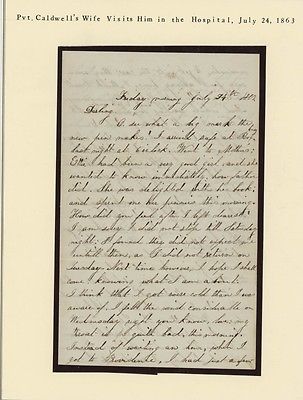 Pvt. Caldwell's Wife Visits Him in the Hospital, July 24, 1863
Friday morning July 24th
Darling
O see what a big mark this
new pen makes! I arrived safe at
last night at six o'clock. Went to Mothers.
Etta had been a very good girl and she
wanted to know immediately, how father
did. She was delighted with her book,
and spent me her pennies this morning.
How did you pest after I left dearest?
I am sorry I did not stop till Saturday
night. I found they did not expect me
untill then, as I did not return on
Tuesday. Next time however, I hope I shall
come, knowing what I am about.
I think that I got more cold than I was
aware of. I felt the wind considerable on
Wednesday night you know, now, my
throat is quite bad, this morning.
Instead of waiting an hour, when I
got to Providence, I had just a few